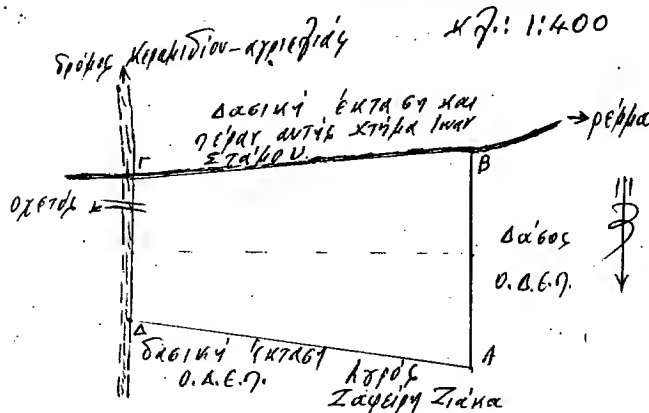 κλ.: 1:400
δρόμος Κεραμιδίου-αγριελιάς
Δασική έκταση και
πέραν αυτής κτήμα Ιωαν
Στάμου
→ρέμμα
Γ
Β
οχετός
Δάσος
Ο.Δ.Ε.Π.
Δ
Α
δασική έκταση
Ο.Δ.Ε.Π.
Αγρός
Ζαφείρη Ζιάκα